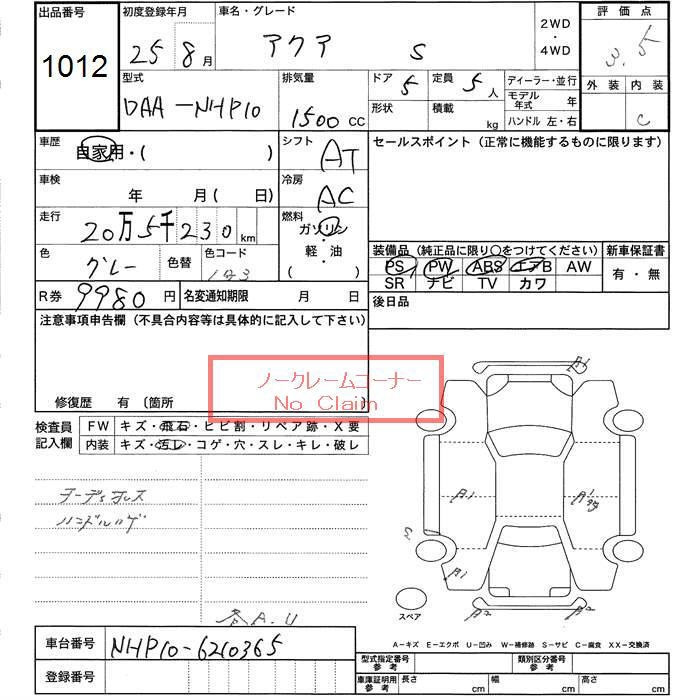 出品番号 初度登録年月 車名・グレード 2WD・4WD 評価点
1012 25 8月 アクア S 3.5
型式 排気量 ドア 5 定員 5人 ディーラー・並行 外装 内装
DAA-NHP10 1500 CC 形状 積載 kg モデル年式 年 C
ハンドル 左・右
車歴 自家用・( ) シフト AT セールスポイント (正常に機能するものに限ります)
車検 年 月 ( 日) 冷房 AC
走行 20万5千230 km 燃料 ガソリン
色 グレー 色替 色コード 1G3 軽・油 ( ) 装備品 (純正品に限り○をつけてください) 新車保証書
PS PW ABS エアB AW 有・無
SR ナビ TV カワ
R券 9980円 名変通知期限 月 日 後日品
注意事項申告欄 (不具合内容等は具体的に記入して下さい)
ノークレームコーナー
No Claim
修復歴 有 〔箇所 〕
検査員記入欄 FW キズ・飛石・ヒビ割・リペア跡・X要
内装 キズ・汚レ・コゲ・穴・スレ・キレ・破レ
オーディオレス
ハンドルハゲ
A1
A1 A1
S
A1 A2 A2
スペア
各A.U
A-キズ E-エクボ U-凹み W-補修跡 S-サビ C-腐食 XX-交換済
車台番号 NHP10-6210365
登録番号
型式指定番号 参考 類別区分番号 参考
車庫証明用 参考 長さ cm 幅 cm 高さ cm